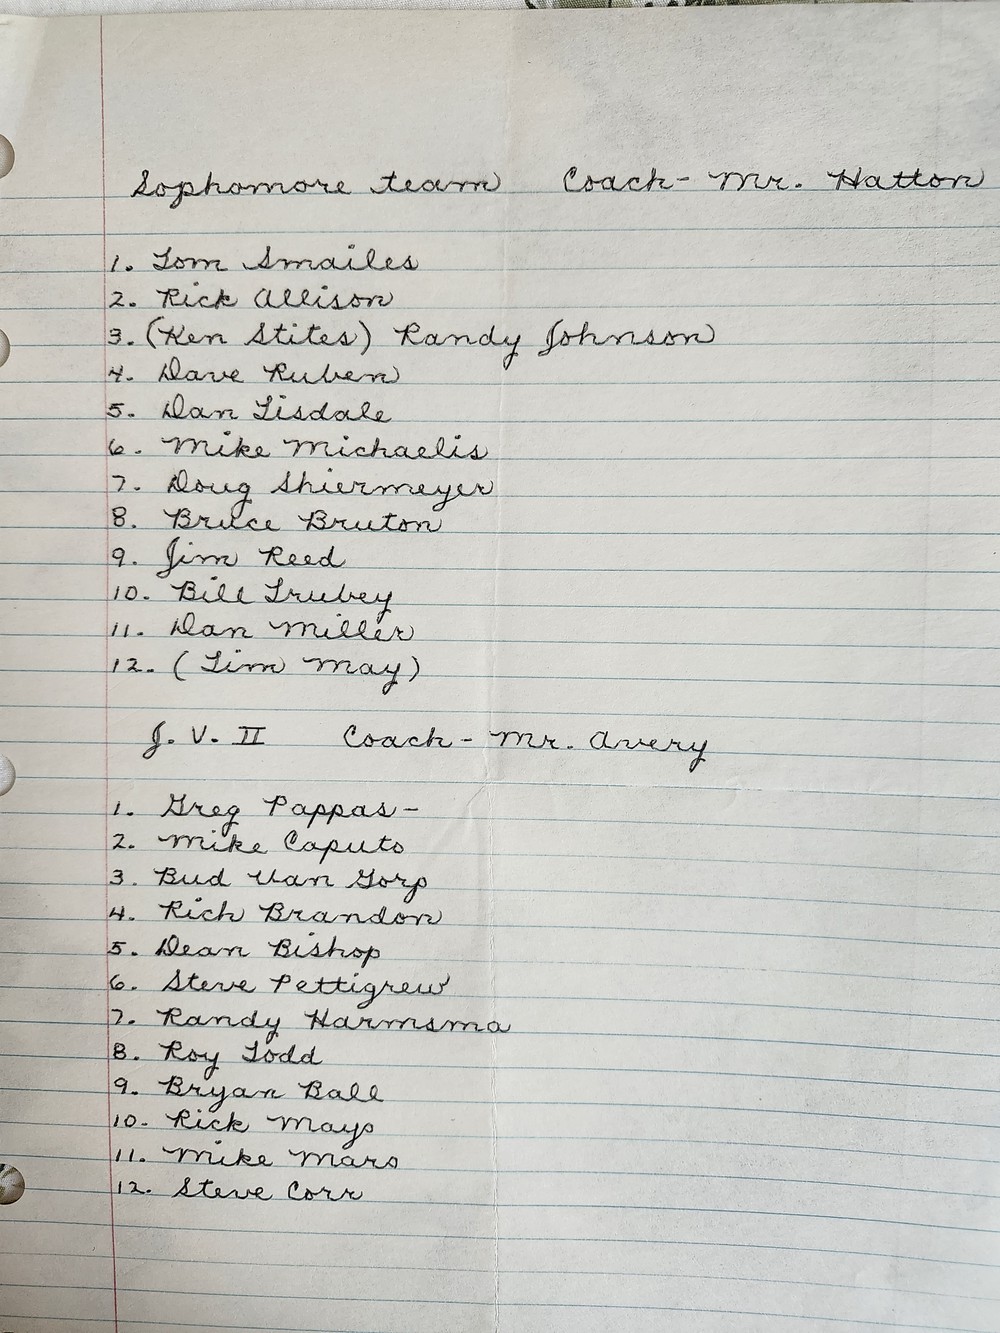 Sophomore team Coach- Mr. Hatton
1. Tom Smailes
2. Rick Allison
3. (Ken Stites) Randy Johnson
4. Dave Ruben
5. Dan Tisdale
6. Mike Michaelis
7. Doug Shiermeyer
8. Bruce Bruton
9. Jim Reed
10. Bill Trubey
11. Dan Miller
12. (Tim May)
J. V. II Coach - Mr. Avery
1. Greg Pappas-
2. Mike Caputo
3. Bud Van Gorp
4. Rich Brandon
5. Dean Bishop
6. Steve Pettigrew
7. Randy Harmsma
8. Roy Todd
9. Bryan Ball
10. Rick Mays
11. Mike Mars
12. Steve Corr